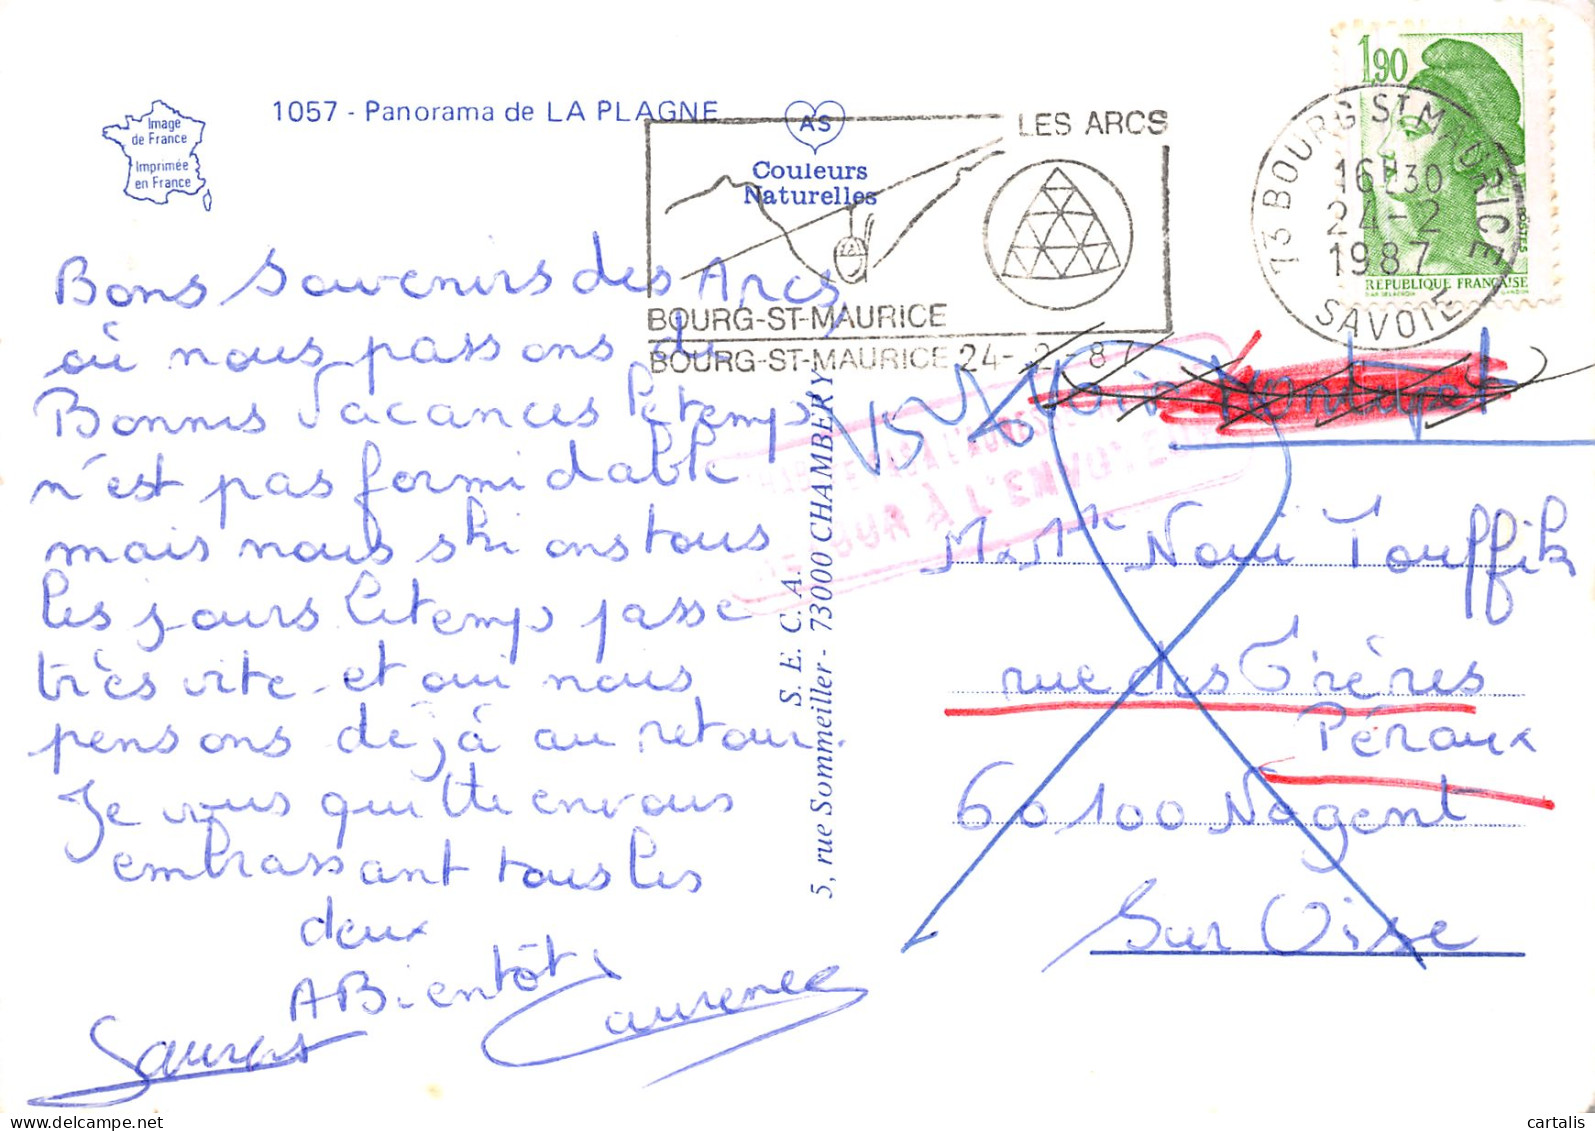 Image
de France
Imprimée
en France
1057 - Panorama de LA PLAGNE
AS
Couleurs
Naturelles
LES ARCS
BOURG-ST-MAURICE
BOURG-ST-MAURICE 24-2-87
1,90
RÉPUBLIQUE FRANÇAISE
73 BOURG ST MAURICE
16H30
24-2
1987
SAVOIE
Bons Souvenirs des Arcs,
où nous passons de
Bonnes Vacances le temps
n'est pas formidable
mais nous skions tous
les jours le temps passe
très vite et oui nous
pensons déjà au retour.
Je vous quitte en vous
embrassant tous les
deux
A Bientôt
Laurence
S. E. C. A.
5, rue Sommeiller - 73000 CHAMBERY
RETOUR À L'ENVOYEUR
Voir
Noui Touffik
rue des Frères
Péraux
60100 Nogent
Sur Oise
cartalis